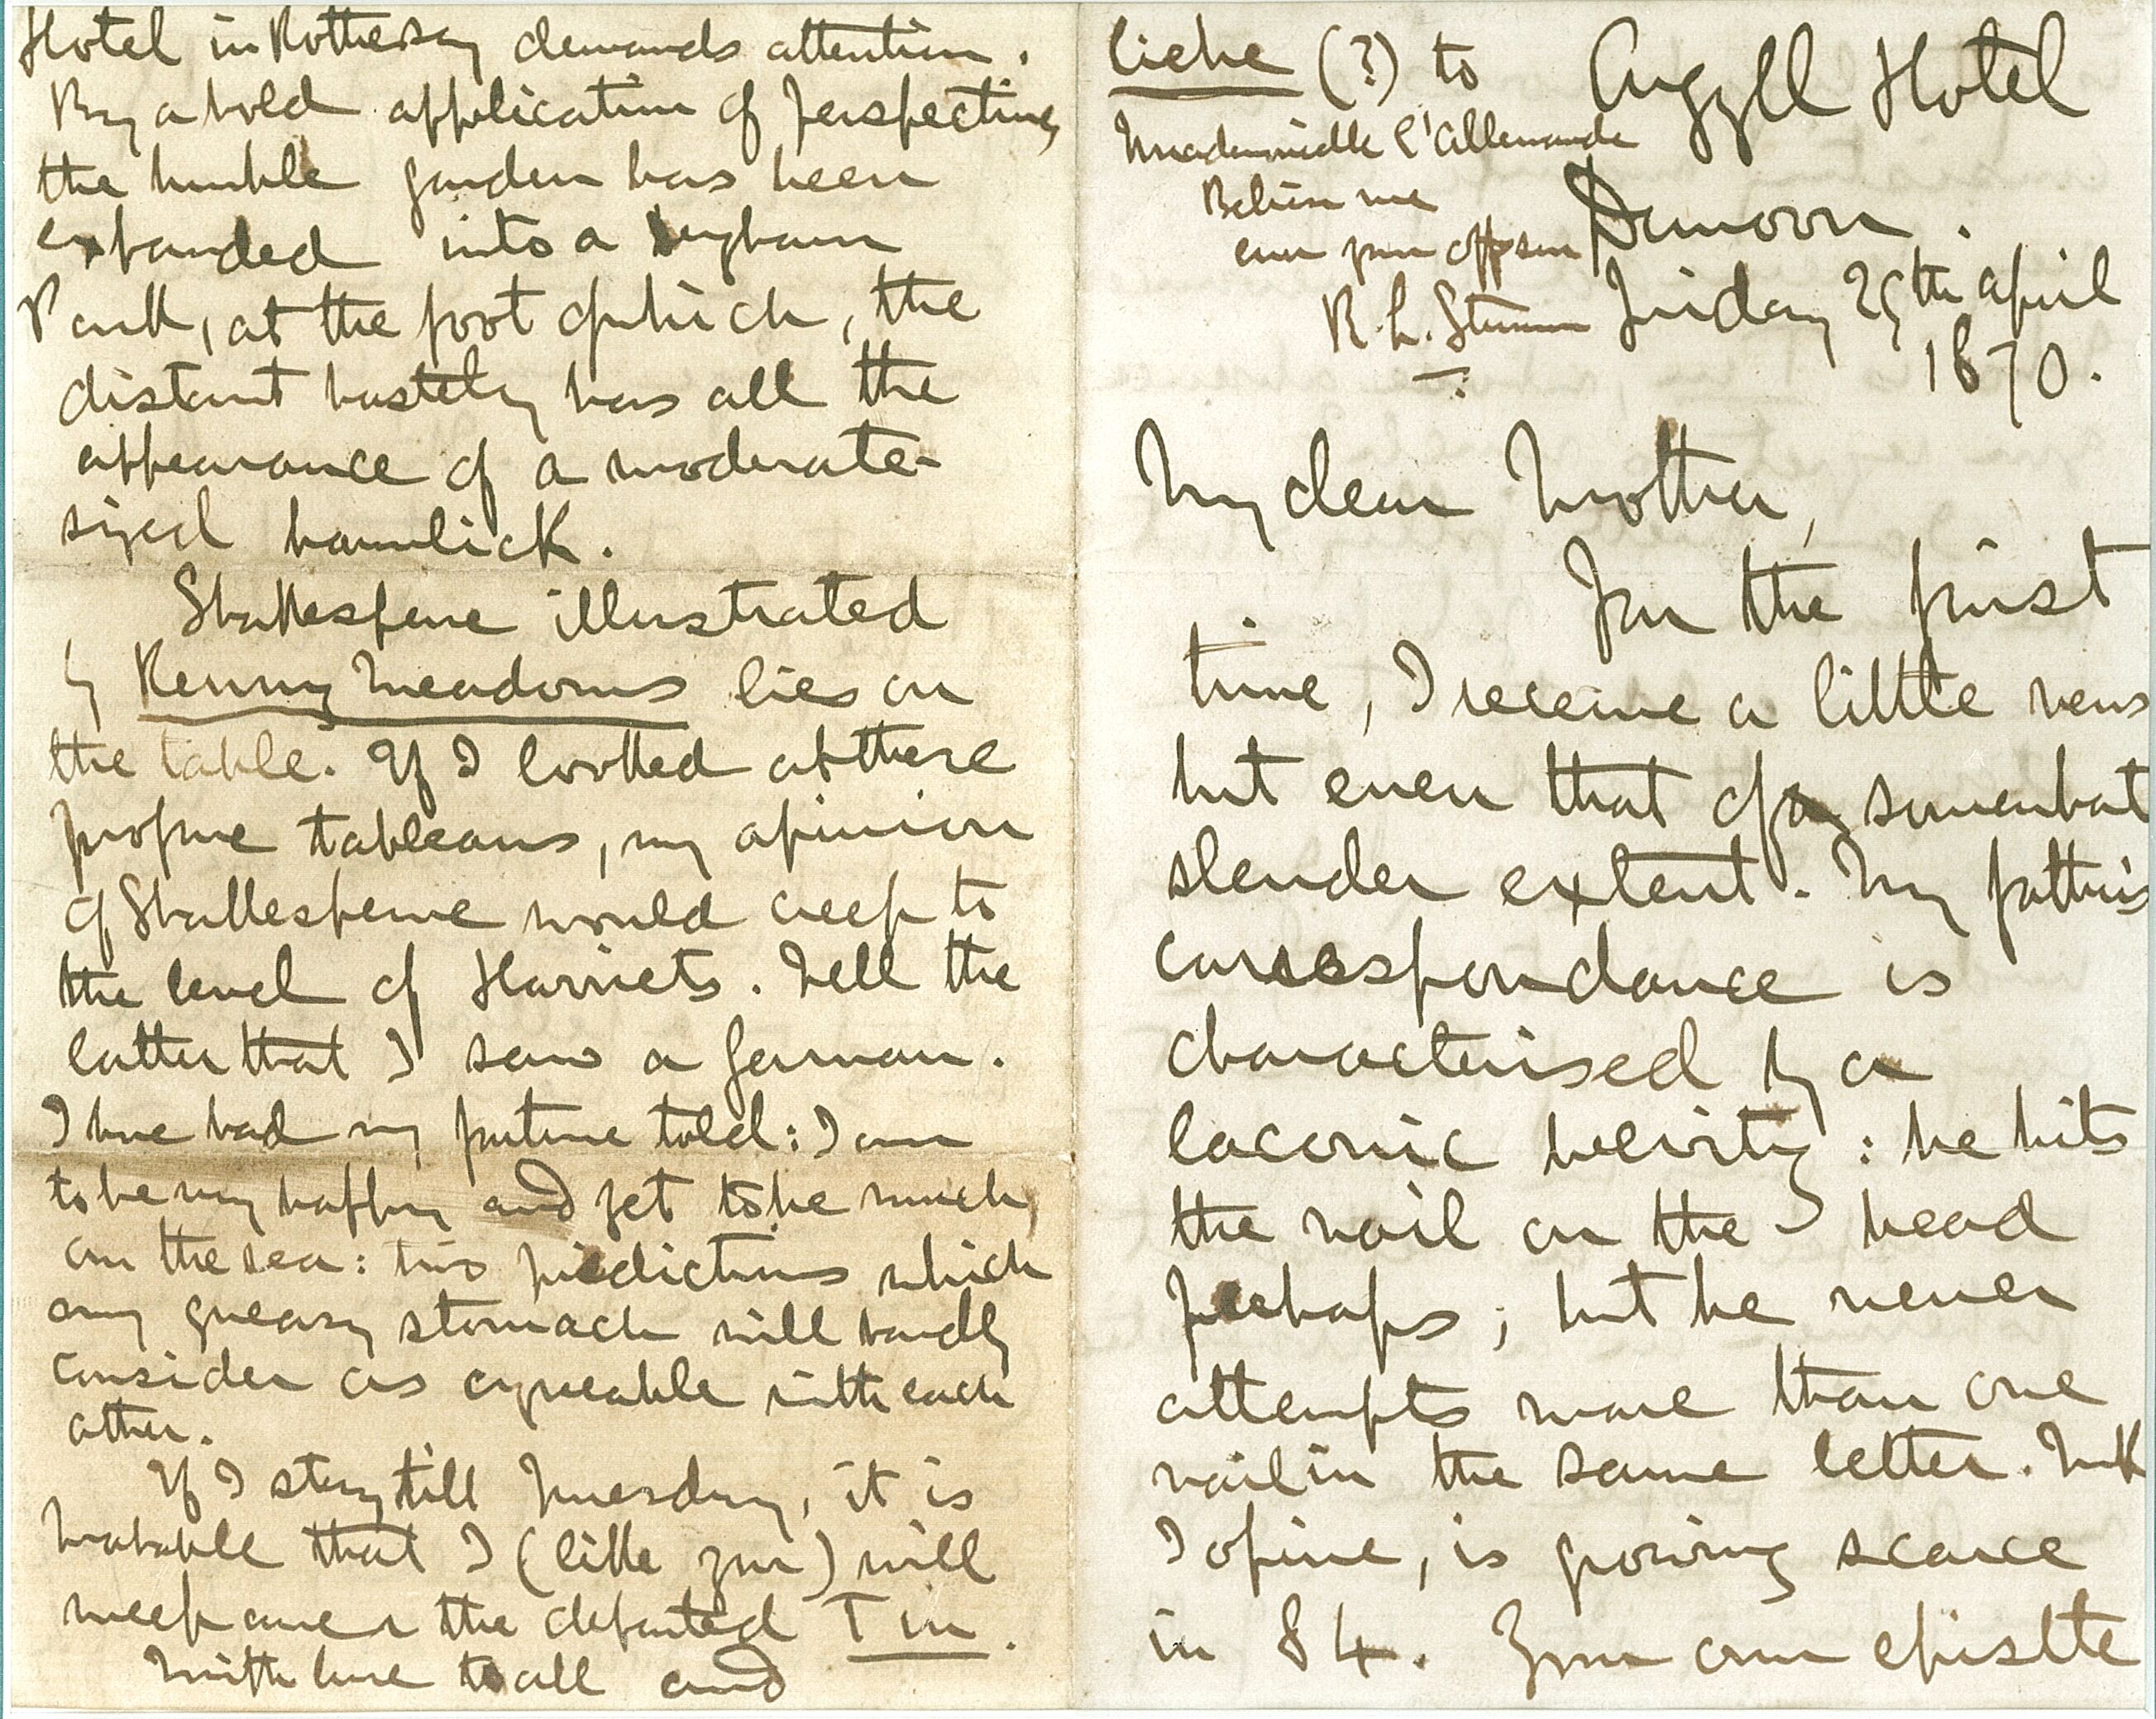 Hotel in Rothesay demands attention.
By a bold application of perspective,
the humble garden has been
expanded into a
Park, at the foot of which, the
distant hostelry has all the
appearance of a moderate-
sized hannlick.
Shakespeare illustrated
by Kenny Meadows lies on
the table. If I looked at these
profane tableaus, my opinion
of Shakespeare would creep to
the level of Harriets. Tell the
latter that I saw a German.
I have had my fortune told: I am
to be very happy and yet to be much
on the sea: two predictions which
any greasy stomach will hardly
consider as agreable with each
other.
If I stay till Tuesday, it is
probable that I (like you) will
weep over the departed Tin.
With love to all and
liche (?) to
Mademoiselle l'Allemande
Believe me
ever your affp son
R. L. Stevenson
Argyll Hotel
Dunoon.
Friday 29th April
1870.
My dear Mother,
For the first
time, I receive a little news
but even that of a somewhat
slender extent. My father's
correspondance is
characterised by a
laconic brevity: he hits
the nail on the head
perhaps; but he never
attempts more than one
nail in the same letter. Ink
I opine, is growing scarce
in 84. Your own epistle